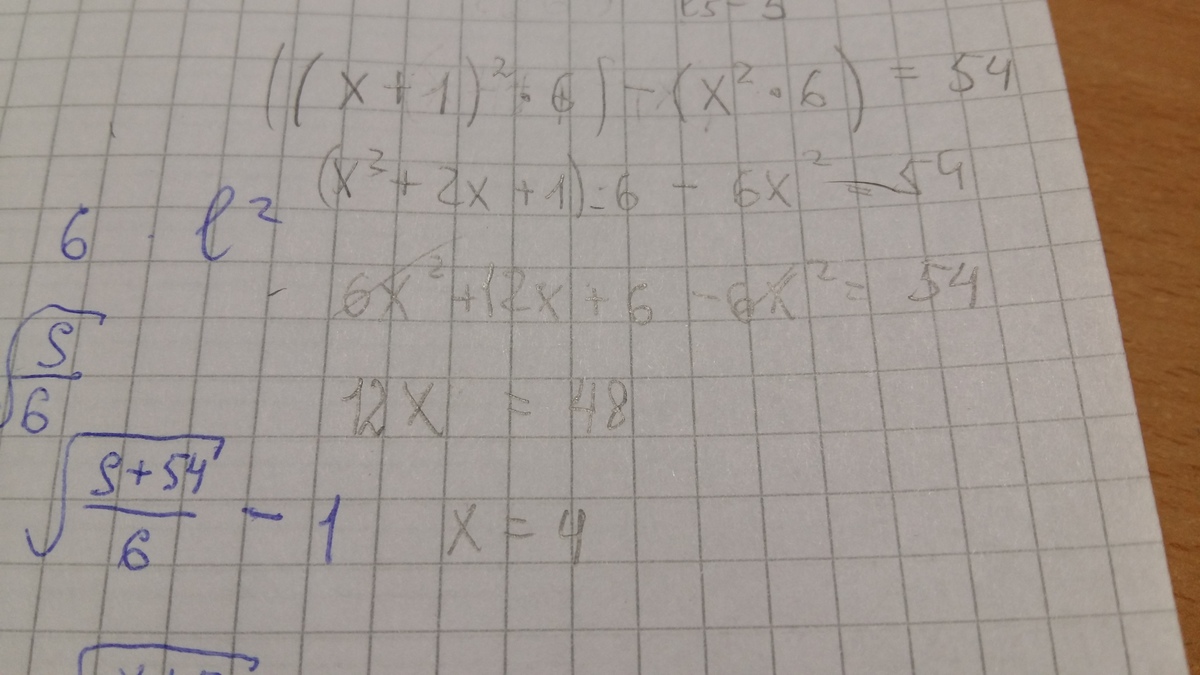 ((x+1)²·6)-(x²·6) = 54
(x²+2x+1)·6 - 6x² = 54
6 · l²
6x²+12x+6 -6x² = 54
√(S/6)
12x = 48
√((S+54)/6) - 1
x = 4